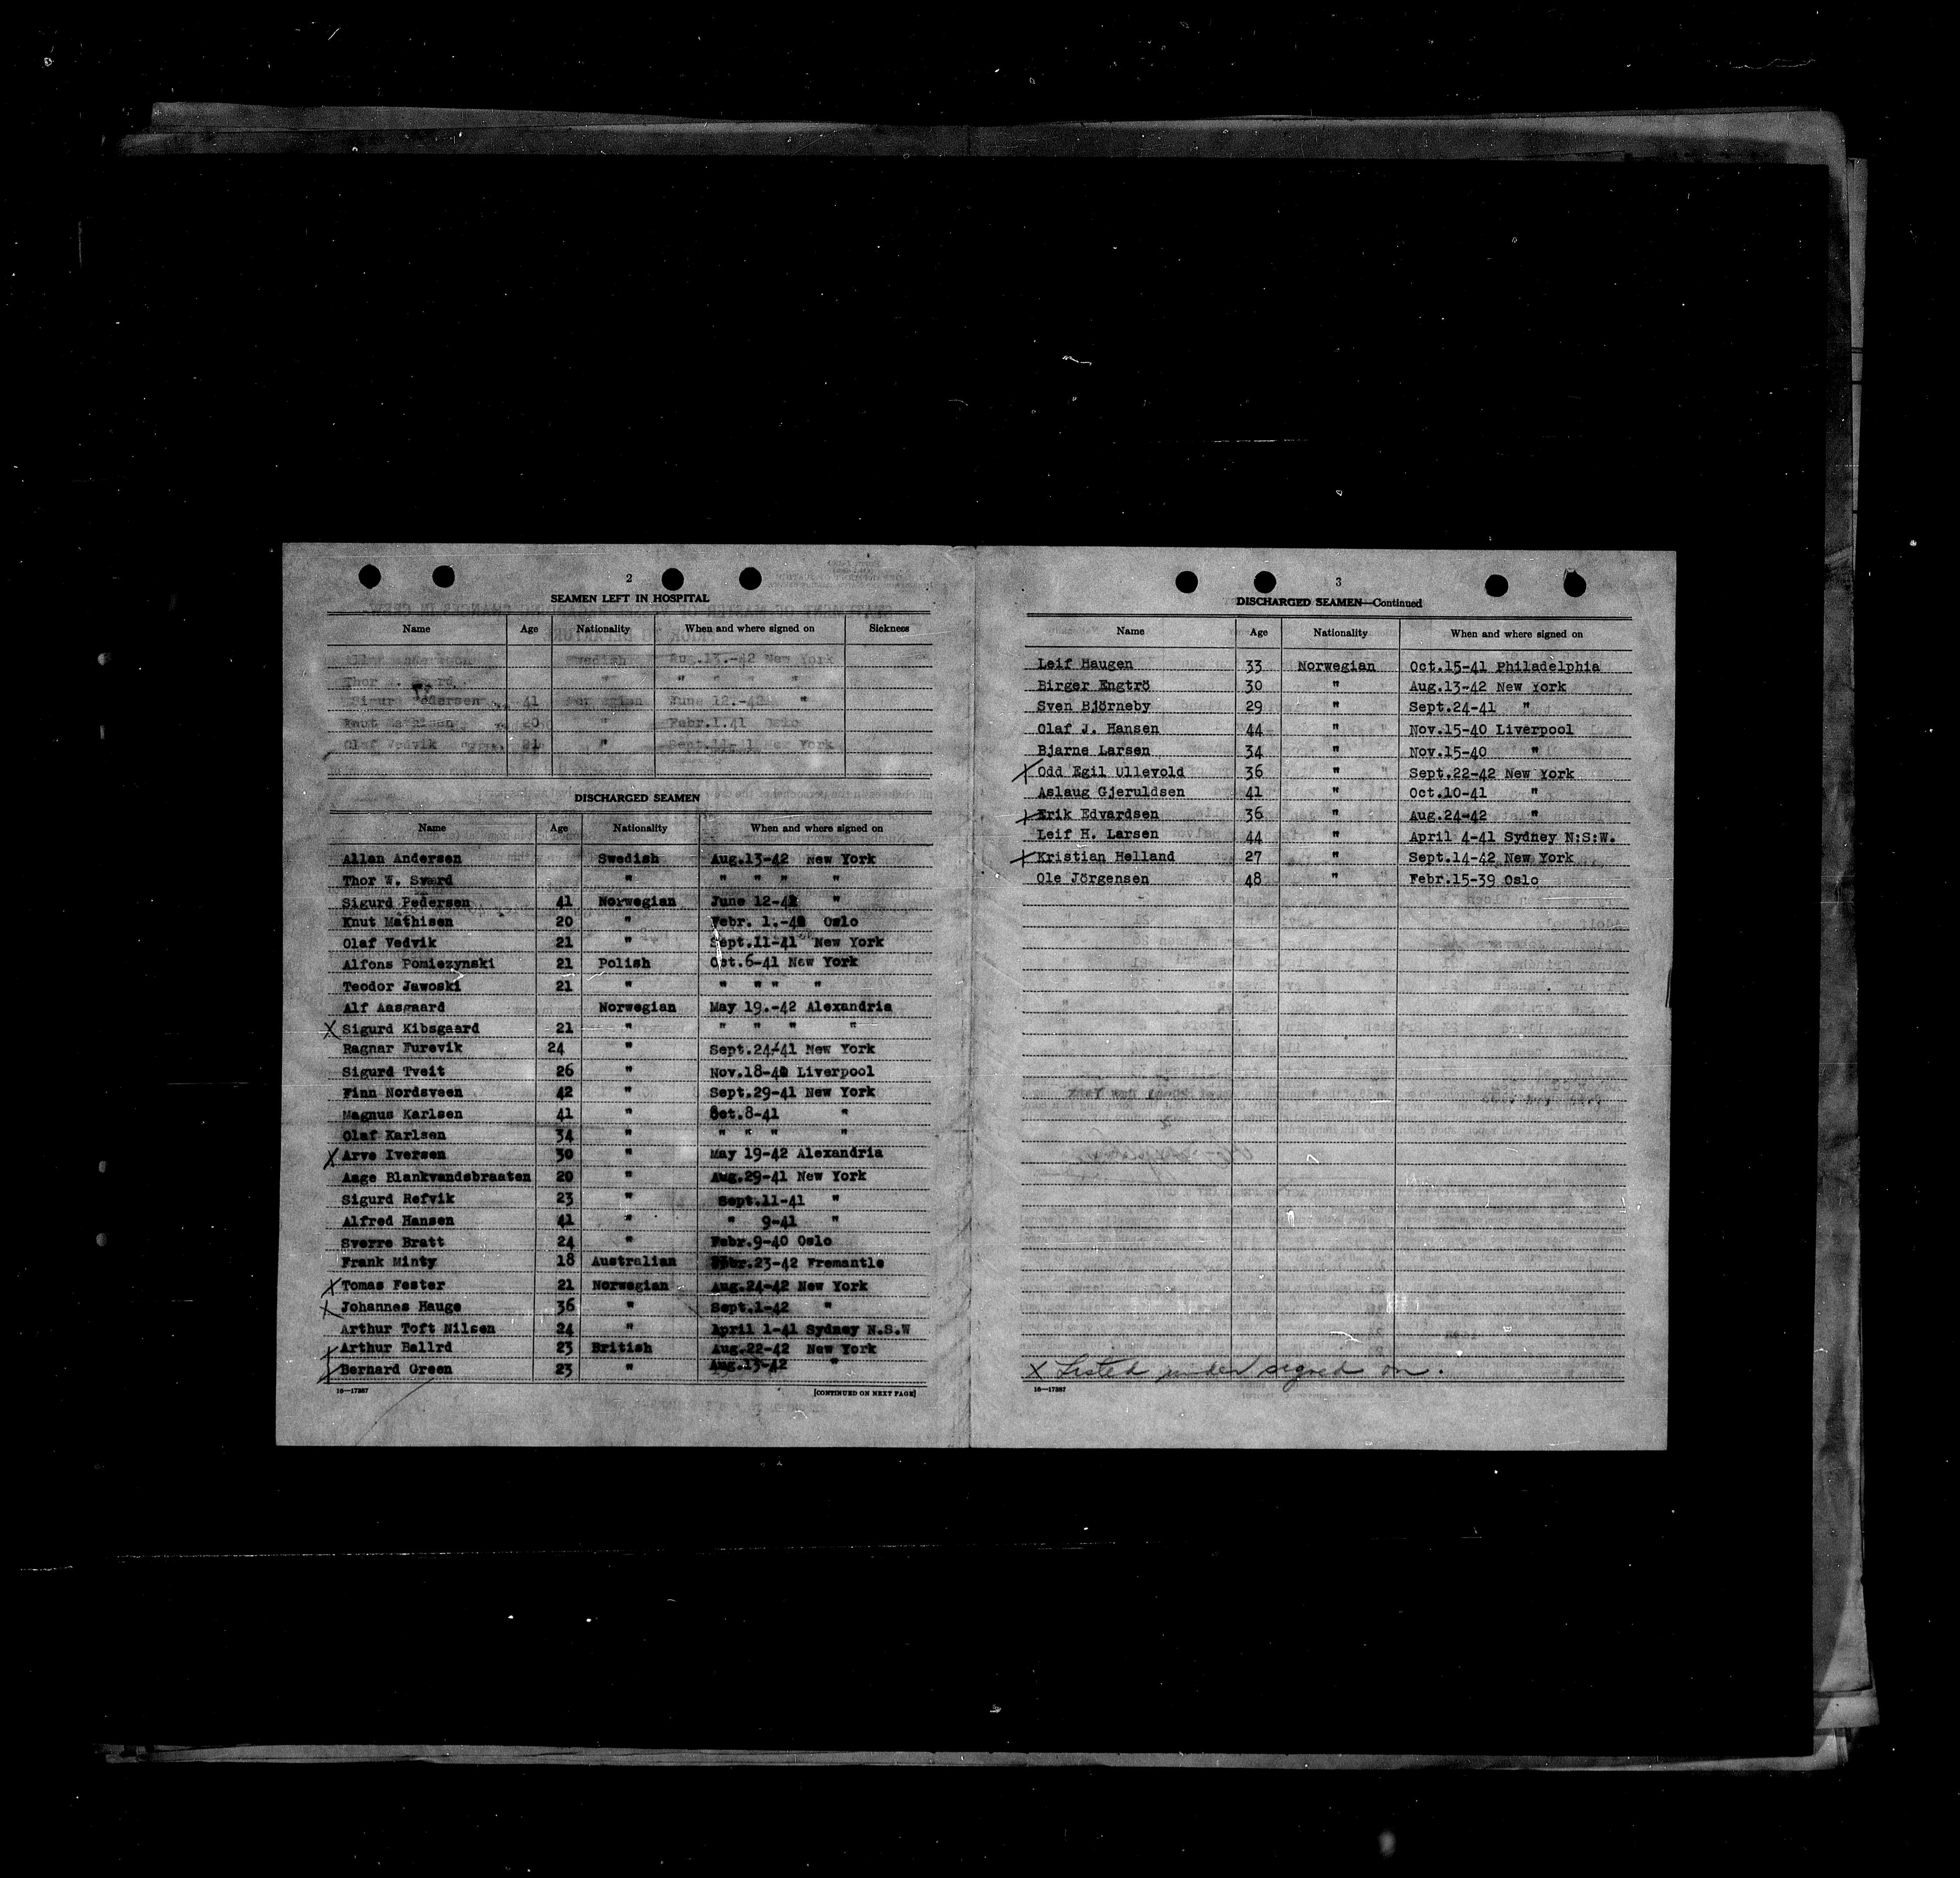 2
SEAMEN LEFT IN HOSPITAL
Name Age Nationality When and where signed on Sickness
Swedish Aug.13.-42 New York
Thor W. Sverd " " " " "
Sigurd Pedersen 41 Norwegian June 12.-42 "
Knut Mathisen 20 " Febr.1.41 Oslo
Olaf Vedvik 21 " Sept.11-41 New York
DISCHARGED SEAMEN
Name Age Nationality When and where signed on
Allan Andersen Swedish Aug.13-42 New York
Thor W. Sverd " " " " "
Sigurd Pedersen 41 Norwegian June 12-42 "
Knut Mathisen 20 " Febr. 1.- Oslo
Olaf Vedvik 21 " Sept.11-41 New York
Alfons Pomiezynski 21 Polish Oct.6-41 New York
Teodor Jawoski 21 " " " " "
Alf Aasgaard Norwegian May 19.-42 Alexandria
X Sigurd Kibsgaard 21 " " " " "
Ragnar Furevik 24 " Sept.24-41 New York
Sigurd Tveit 26 " Nov.18-40 Liverpool
Finn Nordsveen 42 " Sept.29-41 New York
Magnus Karlsen 41 " Oct.8-41 "
Olaf Karlsen 34 " " " " "
X Arve Iversen 30 " May 19-42 Alexandria
Aage Blankvandsbraaten 20 " Aug.29-41 New York
Sigurd Refvik 23 " Sept.11-41 "
Alfred Hansen 41 " " 9-41 "
Sverre Bratt 24 " Febr.9-40 Oslo
Frank Minty 18 Australian Febr.23-42 Fremantle
X Tomas Fester 21 Norwegian Aug.24-42 New York
X Johannes Hauge 36 " Sept.1-42 "
Arthur Toft Nilsen 24 " April 1-41 Sydney N.S.W
X Arthur Ballrd 23 British Aug.22-42 New York
X Bernard Green 23 " Aug.13-42 "
16—17387 [CONTINUED ON NEXT PAGE]
3
DISCHARGED SEAMEN—Continued
Name Age Nationality When and where signed on
Leif Haugen 33 Norwegian Oct.15-41 Philadelphia
Birger Engtrö 30 " Aug.13-42 New York
Sven Björneby 29 " Sept.24-41 "
Olaf J. Hansen 44 " Nov.15-40 Liverpool
Bjarne Larsen 34 " Nov.15-40 "
X Odd Egil Ullevold 36 " Sept.22-42 New York
Aslaug Gjeruldsen 41 " Oct.10-41 "
X Erik Edvardsen 36 " Aug.24-42 "
Leif H. Larsen 44 " April 4-41 Sydney N:S:W.
X Kristian Helland 27 " Sept.14-42 New York
Ole Jörgensen 48 " Febr.15-39 Oslo
X Listed under signed on.
16—17387